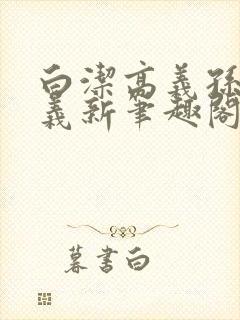 白潔高義孫
義新筆趣閣
暮書白